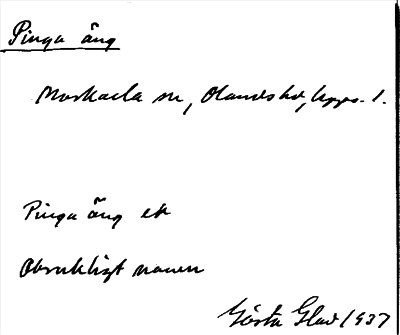 Pinga äng
Morkarla sn, Olands hd, Upps. l.
Pinga äng ek
Obrukligt namn
Gösta Glad 1937